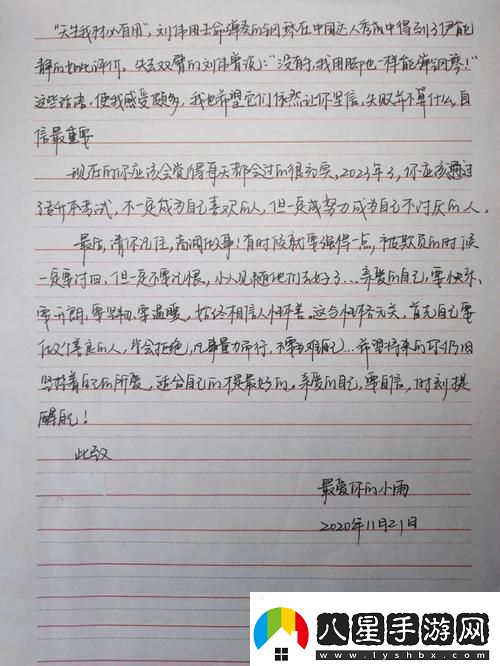 "天生我材必有用",刘伟用生命弹奏的钢琴在中国达人秀成中得到了伊能
静的如此评价。失去双臂的刘伟曾说:"没有手,我用脚也一样能弹钢琴!"
这些话语,使我感受颇多,我也希望它们依然让你坚信,失败并不算什么,自
信最重要
现在的你应该会觉得每天都会过的很充实,2023年了,你应该通过
专升本考试,不一定成为自己喜欢的人,但一定成努力成为自己不讨厌的人。
最后,请你记住,高调做事!有时候就要强得一点,被欺负的时候
一定要讨回,但一定不要记恨,小人见随他们去好了…亲爱的自己,要快乐、
要开朗,要坚韧,要温暖,始终相信人性本善。这与性格无关,首先自己要
做个善良的人,学会拒绝,凡事量力而行,不要为难自己…希望将来的你仍旧
坚持着自己的所爱,适合自己的才是最好的。亲爱的自己,要自信,时刻提
醒自己!
此致
最爱你的小雨
2020年11月21日
八星手游网
www.lyshbx.com